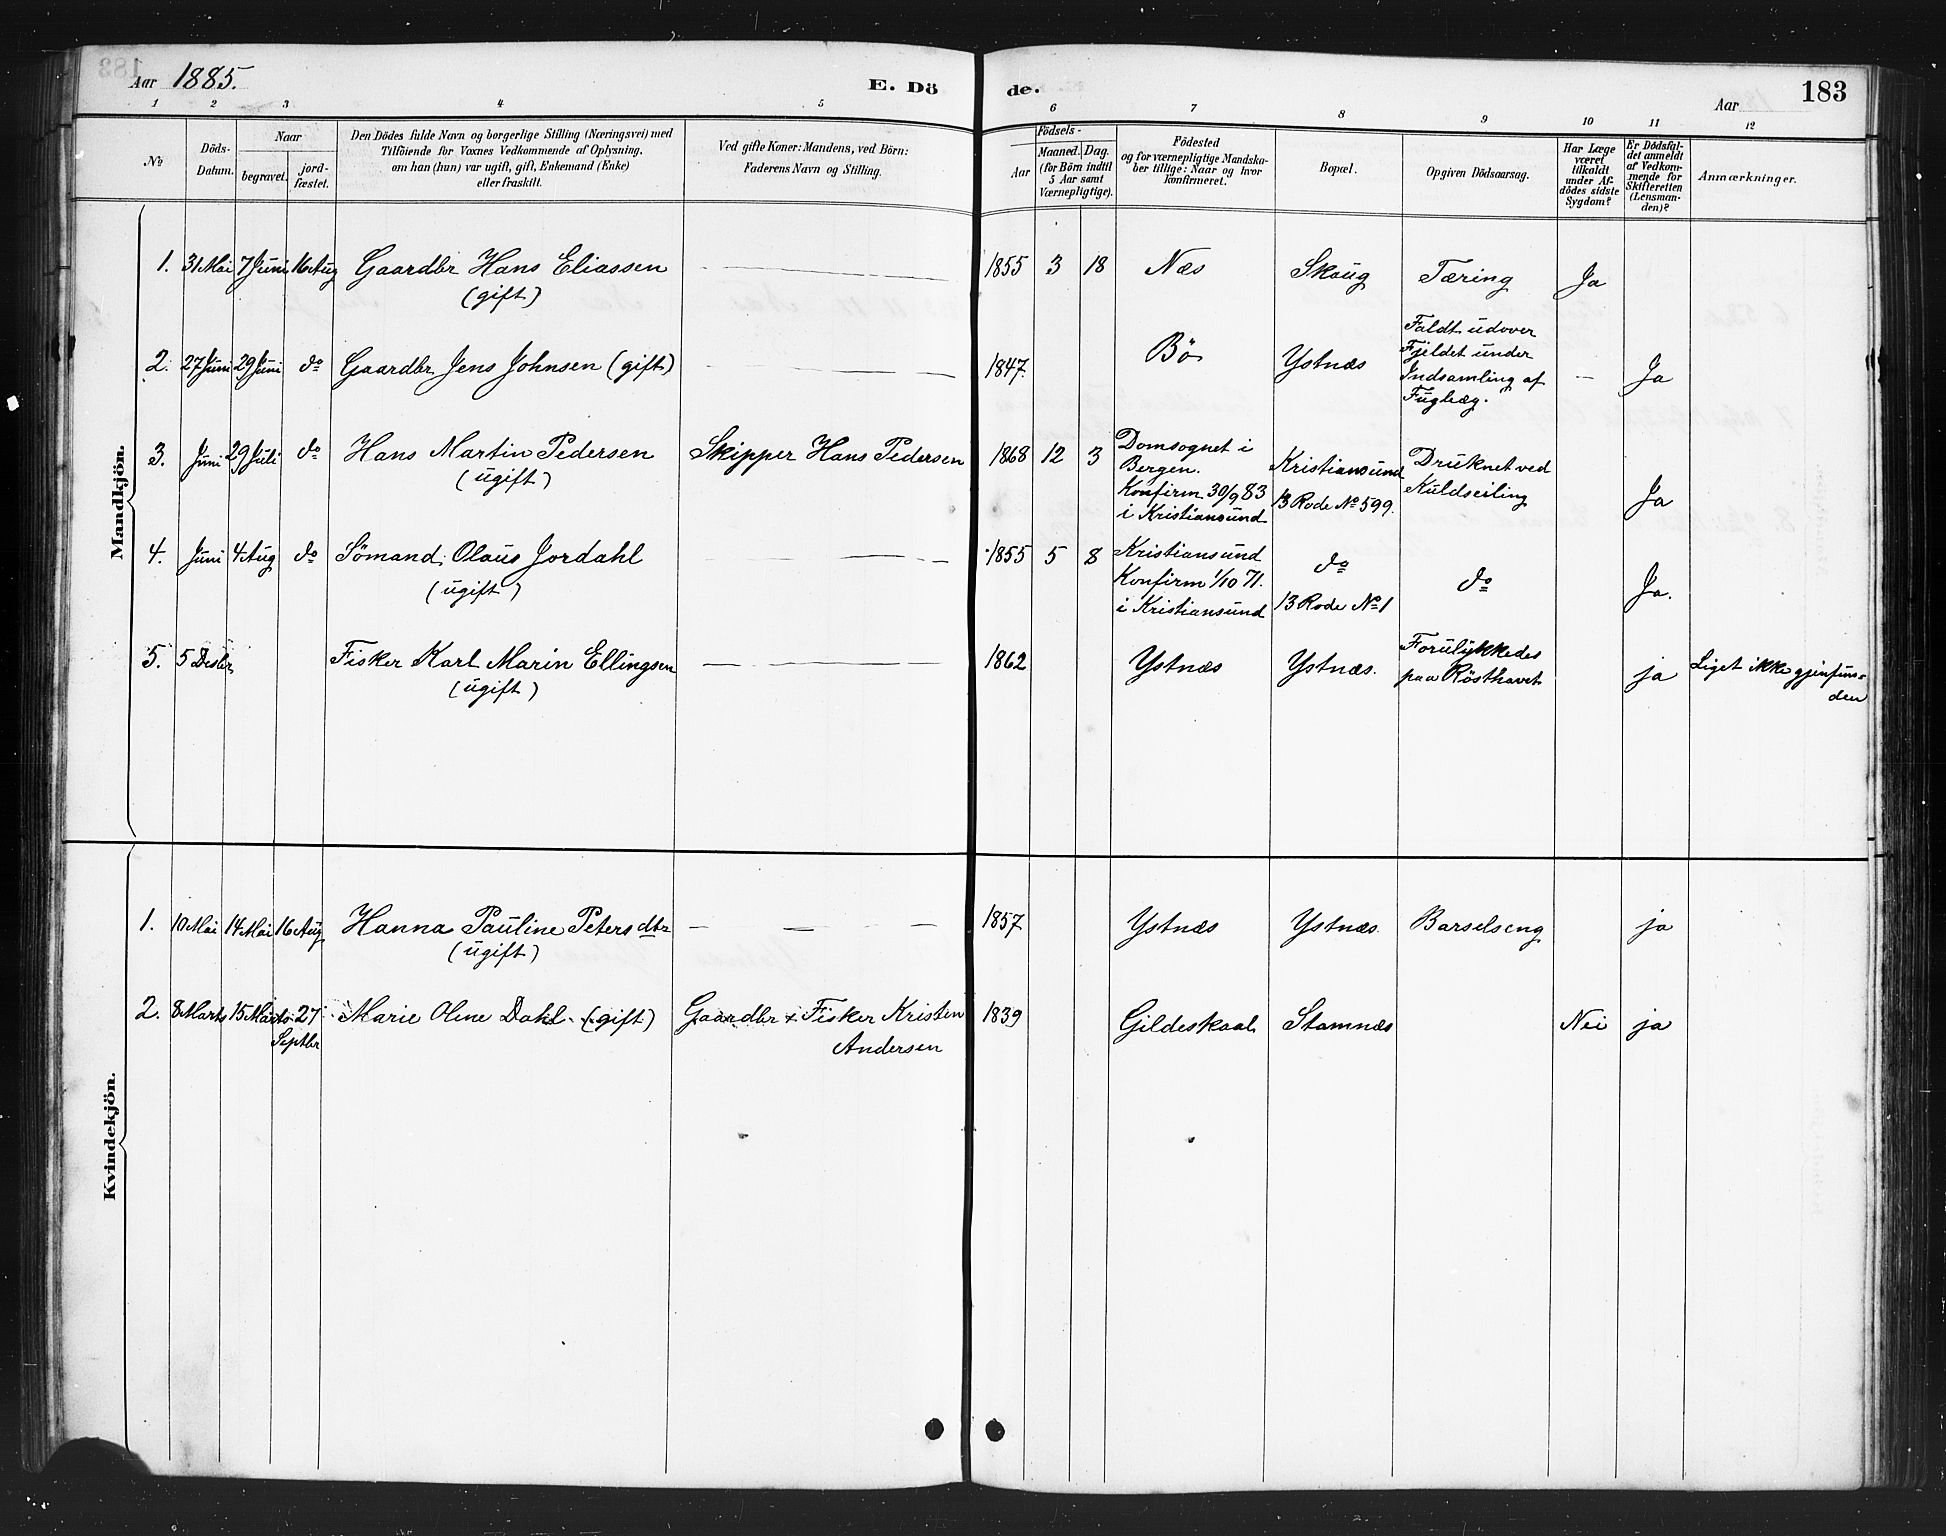 Aar 1885.
E. Dö
de.
Aar
183
1 2 3 4 5 6 7 8 9 10 11 12
No
Döds-
Datum.
Naar
begravet.
jord-
fæstet.
Den Dödes fulde Navn og borgerlige Stilling (Næringsvei) med
Tilföiende for Voxnes Vedkommende af Oplysning,
om han (hun) var ugift, gift, Enkemand (Enke)
eller fraskilt.
Ved gifte Koner: Mandens, ved Börn:
Faderens Navn og Stilling.
Födsels-
Aar
Maaned.
Dag.
(for Börn indtil
5 Aar samt
Værnepligtige).
Födested
og for værnepligtige Mandska-
ber tillige: Naar og hvor
konfirmeret.
Bopæl.
Opgiven Dödsaarsag.
Har Læge
været
tilkaldt
under Af-
dödes sidste
Sygdom?
Er Dödsfal-
det anmeldt
af Vedkom-
mende for
Skifteretten
(Lensman-
den)?
Anmærkninger.
Mandkjön.
1. 31 Mai 7 Juni 16 Aug Gaardbr Hans Eliassen — — — 1855 3 18 Næs Skaug Tæring Ja
(gift)
2. 27 Juni 29 Juni do Gaardbr Jens Johnsen (gift) — — — 1847. Bö Ystnæs Faldt udover — Ja
Fjeldet under
Indsamling af
Fugleæg.
3. Juni 29 Juli do Hans Martin Pedersen Skipper Hans Pedersen 1868 12 3 Domsognet i Kristiansund Druknet ved Ja
(ugift) Bergen. 13 Rode No 599. Kuldseiling
Konfirm 30/9 83
i Kristiansund
4. Juni 4 Aug do Sömand Olaus Jordahl — — — 1855 5 8 Kristiansund do do Ja.
(ugift) Konfirm 1/10 71. 13 Rode No 1
i Kristiansund
5. 5 Desbr Fisker Karl Marin Ellingsen — — — 1862 Ystnæs Ystnæs. Forulykkedes ja Liget ikke gjenfun-
(ugift) paa Rösthavet den
Kvindekjön.
1. 10 Mai 14 Mai 16 Aug Hanna Pauline Petersdtr — — — 1857 Ystnæs Ystnæs Barselseng ja
(ugift)
2. 8 Marts 15 Marts 27 Marie Oline Dahl (gift) Gaardbr & Fisker Kristen 1839 Gildeskaal Stamnæs Nei ja
Septbr Andersen